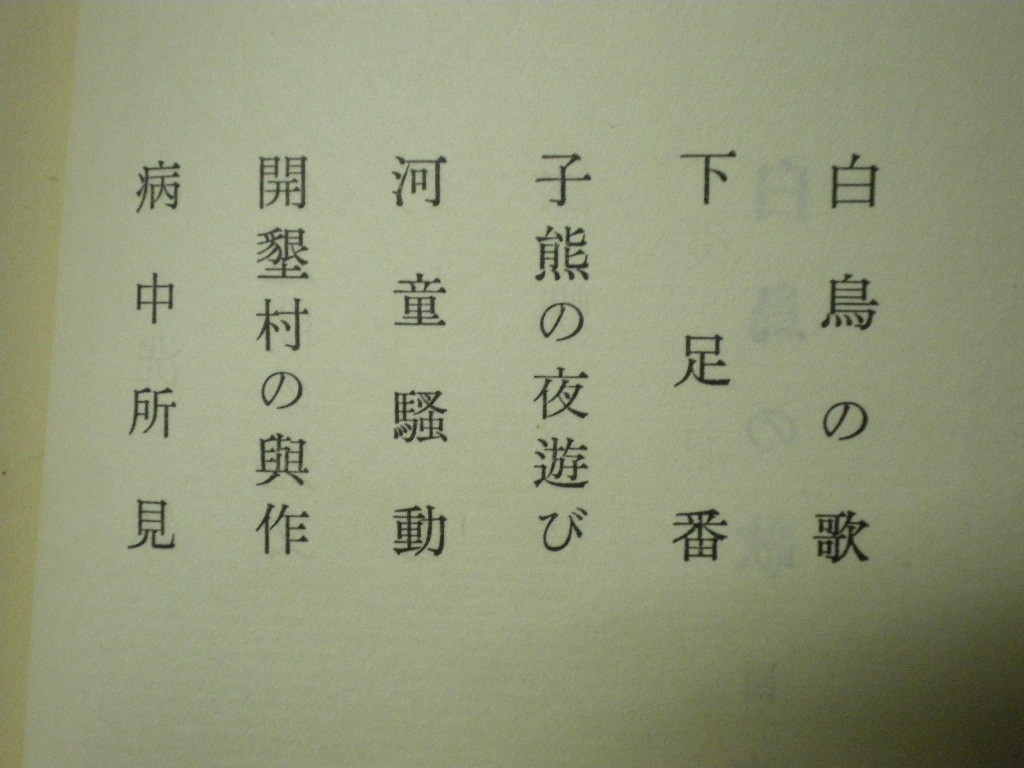 白鳥の歌
下足番
子熊の夜遊び
河童騒動
開墾村の與作
病中所見